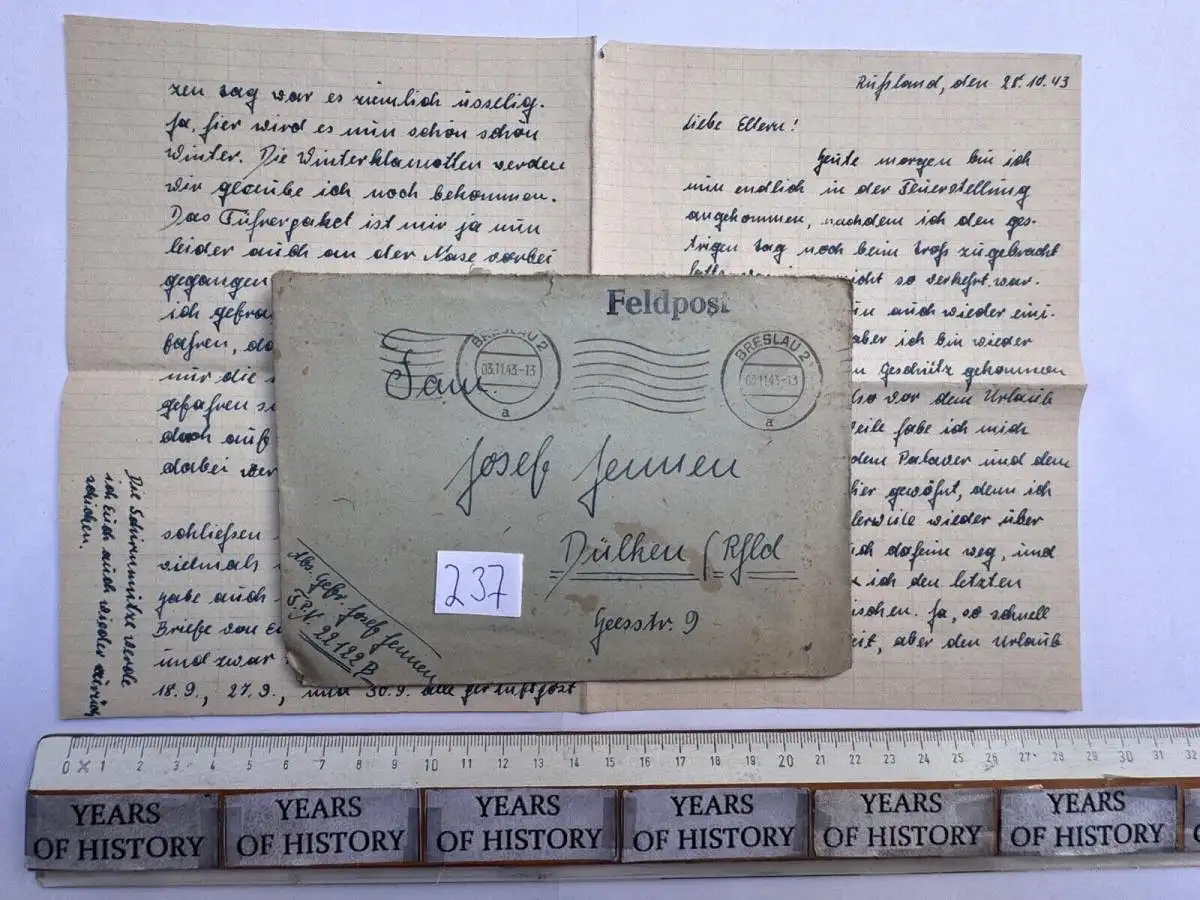 zen Tag war es ziemlich usselig.
Ja, hier wird es nun schon schön
Winter. Die Winterklamotten werden
wir glaube ich noch bekommen.
Das Führerpaket ist mir ja nun
leider auch an der Nase vorbei
gegangen
ich gefra
fahren, da
mir die
gefahren
doch auf
dabei
schließen
vielmals
habe auch
Briefe von
und zwar
18.9., 27.9., und 30.9. alle per Luftpost
Die Schirmmütze werde
ich Euch auch wieder zurück
schicken.
Rußland, den 28.10.43
Liebe Eltern!
Heute morgen bin ich
nun endlich in der Feuerstellung
angekommen, nachdem ich den ges-
trigen Tag noch beim Troß zugebracht
icht so verkehrt war.
auch wieder eini-
aber ich bin wieder
Geschütz gekommen
vor dem Urlaub
habe ich mich
dem Palaver und dem
hier gewöhnt, denn ich
lerweile wieder über
ch daheim weg, und
ich den letzten
ischen. Ja, so schnell
eit, aber den Urlaub
Feldpost
BRESLAU 2
03.11.43-13
a
BRESLAU 2
03.11.43-13
a
Fam.
Josef Jennen
Dülken / Rhld
Geesstr. 9
Abs. Gefr. Josef Jennen
F.P.N. 22122 B
237
0 1 2 3 4 5 6 7 8 9 10 11 12 13 14 15 16 17 18 19 20 21 22 23 24 25 26 27 28 29 30 31 32
YEARS OF HISTORY
YEARS OF HISTORY
YEARS OF HISTORY
YEARS OF HISTORY
YEARS OF HISTORY
YEARS OF HISTORY